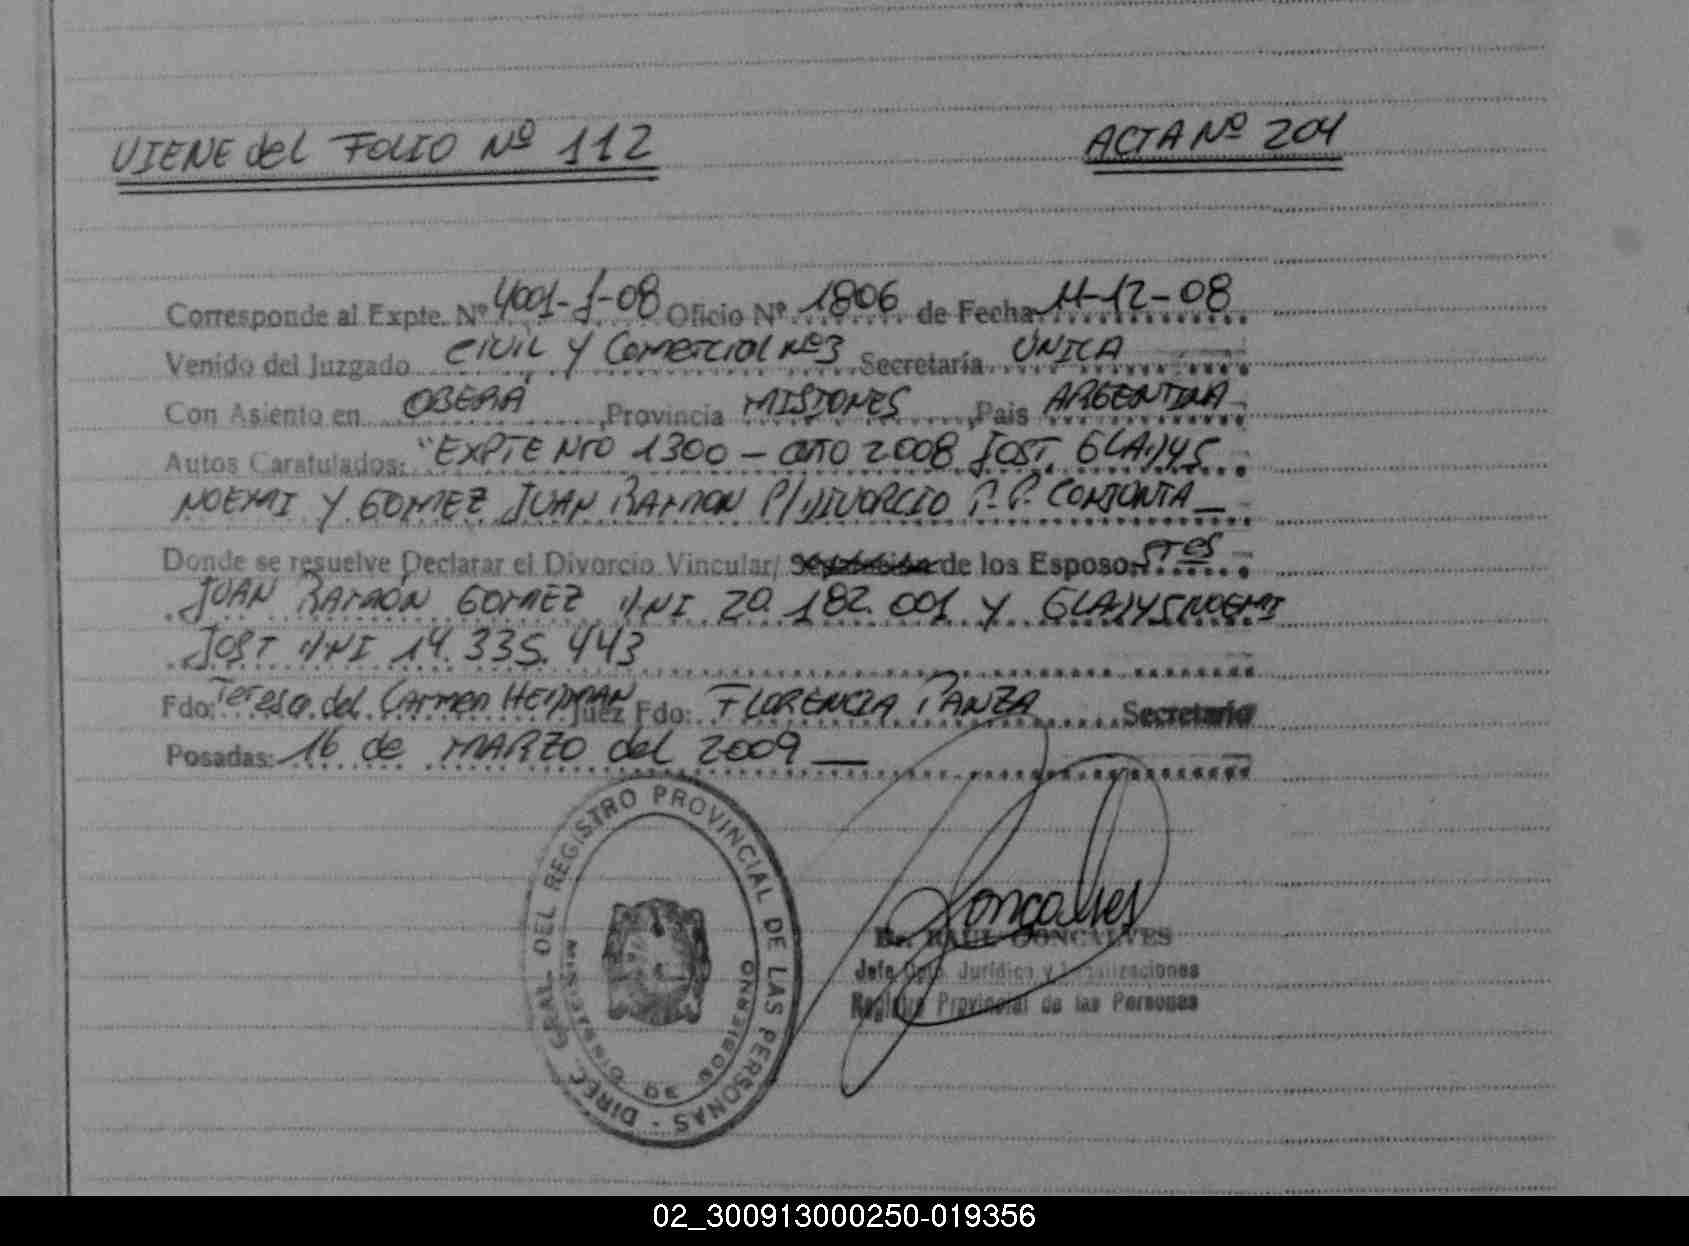 VIENE del FOLIO Nº 112
ACTA Nº 204
Corresponde al Expte. Nº 4001-J-08 Oficio Nº 1806 de Fecha 11-12-08
Venido del Juzgado CIVIL Y Comercial Nº3 Secretaría ÚNICA
Con Asiento en OBERÁ, Provincia MISIONES, Pais ARGENTINA
Autos Caratulados: "EXPTE Nro 1300 - año 2008 JOST, GLADYS
NOEMI Y GOMEZ JUAN RAMON P/DIVORCIO P.P. CONJUNTA
Donde se resuelve Declarar el Divorcio Vincular/ de los Esposos: Sres
JUAN RAMÓN GOMEZ DNI 20.182.001 Y GLADYS NOEMI
JOST DNI 14.335.443
Fdo: Teresa del Carmen Juez Fdo: FLORENCIA PANZA Secretario
Posadas: 16 de MARZO del 2009
DIREC. GRAL. DEL REGISTRO PROVINCIAL DE LAS PERSONAS
MISIONES
GOBIERNO DE
Goncalves
Dr. RAUL GONCALVES
Jefe Dpto. Jurídico y Legalizaciones
Registro Provincial de las Personas
02_300913000250-019356